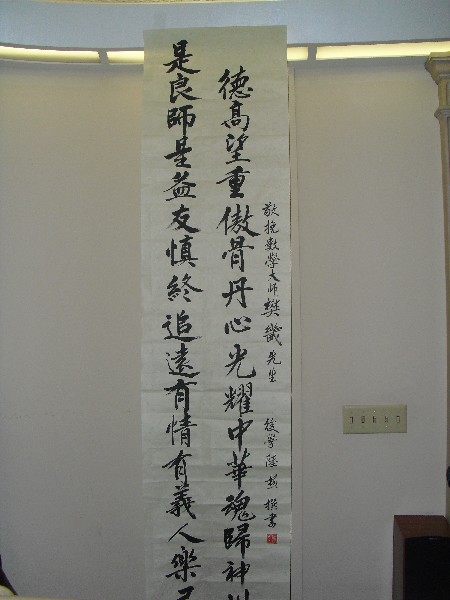 敬挽數學大師樊畿先生 後學陸 撰書
德高望重傲骨丹心光耀中華魂歸神
是良師是益友慎終追遠有情有義人樂